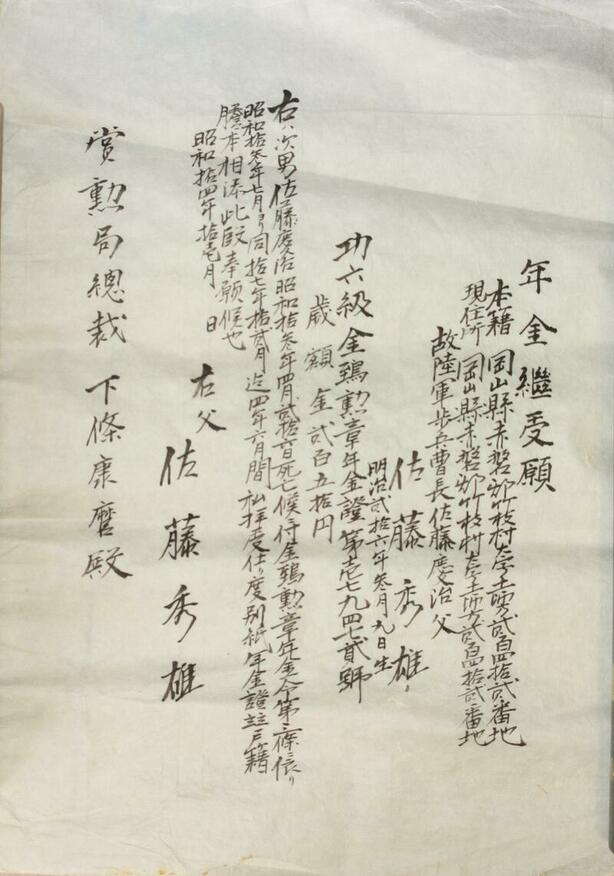 年金継受願
本籍 岡山縣赤磐郡竹枝村大字土師方貳百四拾貳番地
現住所 岡山縣赤磐郡竹枝村大字土師方貳百四拾貳番地
故陸軍歩兵曹長佐藤慶治父
佐藤秀雄
明治貳拾六年参月九日生
功六級金鵄勲章年金證第壱七九四七貳號
歳額金貳百五拾円
右ハ次男佐藤慶治昭和拾参年四月貳拾 日死亡候ニ付金鵄勲章年金令第 條ニ依リ
昭和拾参年七月ヨリ同拾七年拾貳月迄四年六月間私拝受仕リ度別紙年金證並戸籍
謄本相添此段奉願候也
昭和拾四年拾壱月 日
右父
佐藤秀雄
賞勲局總裁 下條康麿殿